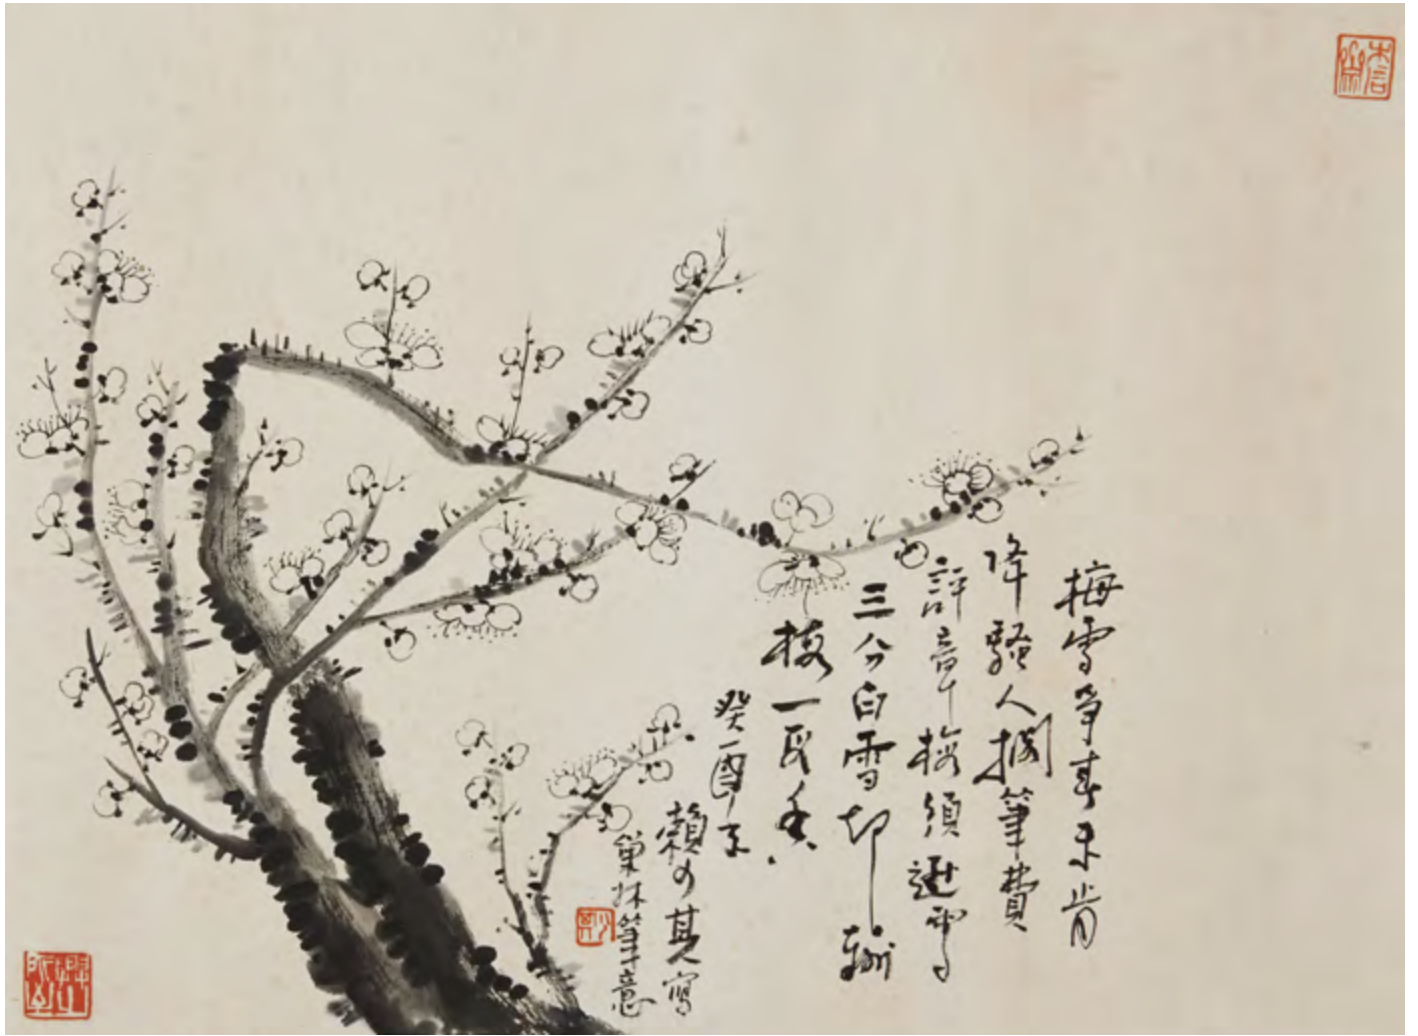 梅雪爭春未肯
降騷人擱筆費
評章梅須遜雪
三分白雪卻輸
梅一段香
癸酉冬
賴少其寫
巢林筆意